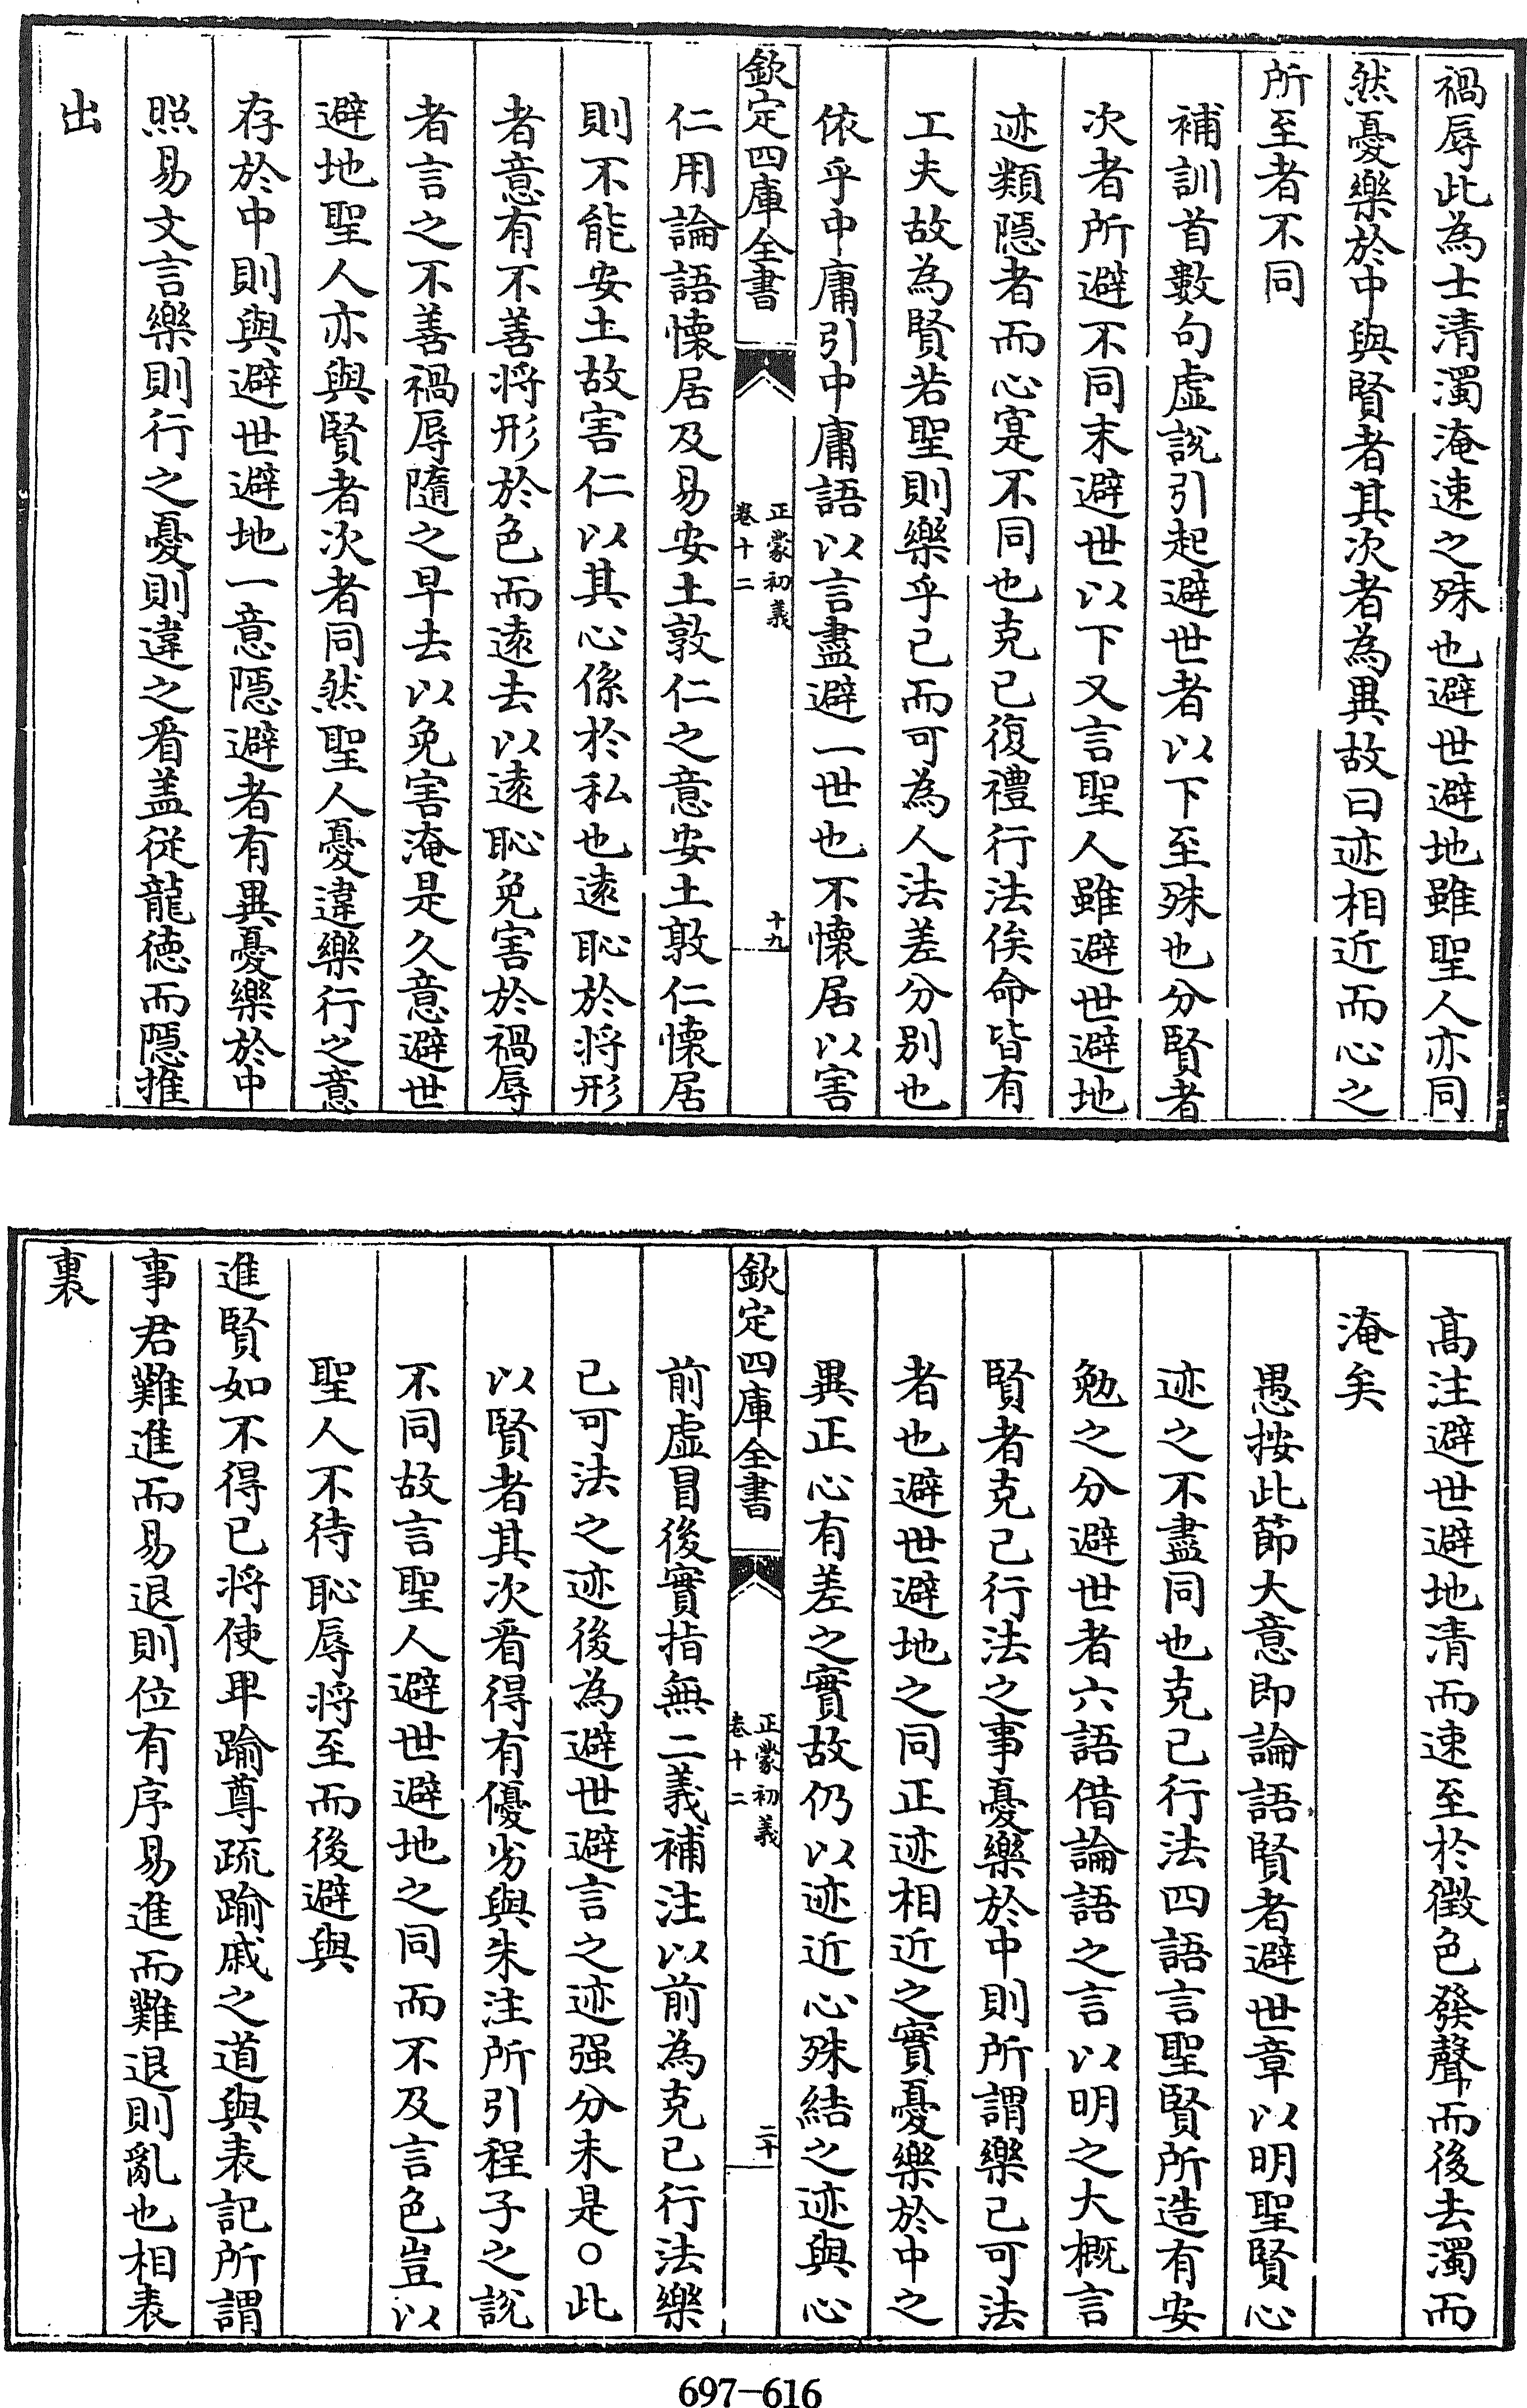 禍辱此為士清濁淹速之殊也避世避地雖聖人亦同
然憂樂於中與賢者其次者為異故曰迹相近而心之
所至者不同
補訓首數句虛說引起避世者以下至殊也分賢者
次者所避不同末避世以下又言聖人雖避世避地
迹類隱者而心寔不同也克己復禮行法俟命皆有
工夫故為賢若聖則樂乎己而可為人法差分別也
依乎中庸引中庸語以言盡避一世也不懷居以害
欽定四庫全書
正蒙初義
卷十二
十九
仁用論語懷居及易安土敦仁之意安土敦仁懷居
則不能安土故害仁以其心係於私也遠恥於將形
者意有不善將形於色而遠去以遠恥免害於禍辱
者言之不善禍辱隨之早去以免害淹是久意避世
避地聖人亦與賢者次者同然聖人憂違樂行之意
存於中則與避世避地一意隱避者有異憂樂於中
照易文言樂則行之憂則違之看盖從龍德而隱推
出
高注避世避地清而速至於徵色發聲而後去濁而
淹矣
愚按此節大意即論語賢者避世章以明聖賢心
迹之不盡同也克己行法四語言聖賢所造有安
勉之分避世者六語借論語之言以明之大概言
賢者克己行法之事憂樂於中則所謂樂己可法
者也避世避地之同正迹相近之實憂樂於中之
異正心有差之實故仍以迹近心殊結之迹與心
欽定四庫全書
正蒙初義
卷十二
二十
前虛冒後實指無二義補注以前為克己行法樂
己可法之迹後為避世避言之迹强分未是○此
以賢者其次看得有優劣與朱注所引程子之說
不同故言聖人避世避地之同而不及言色豈以
聖人不待恥辱將至而後避與
進賢如不得已將使卑踰尊疏踰戚之道與表記所謂
事君難進而易退則位有序易進而難退則亂也相表
裏
697-616